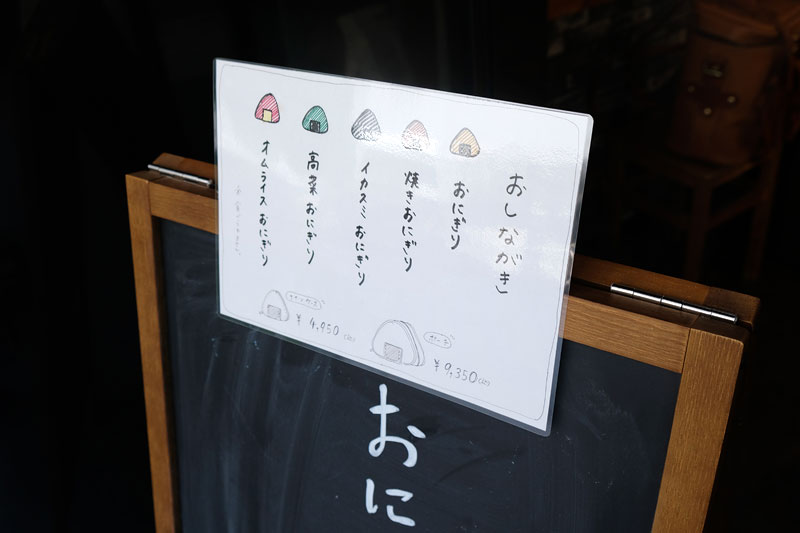 おしながき
おにぎり
焼きおにぎり
イカスミ おにぎり
高菜 おにぎり
オムライス おにぎり
¥ 4,950
¥ 9,350
おに